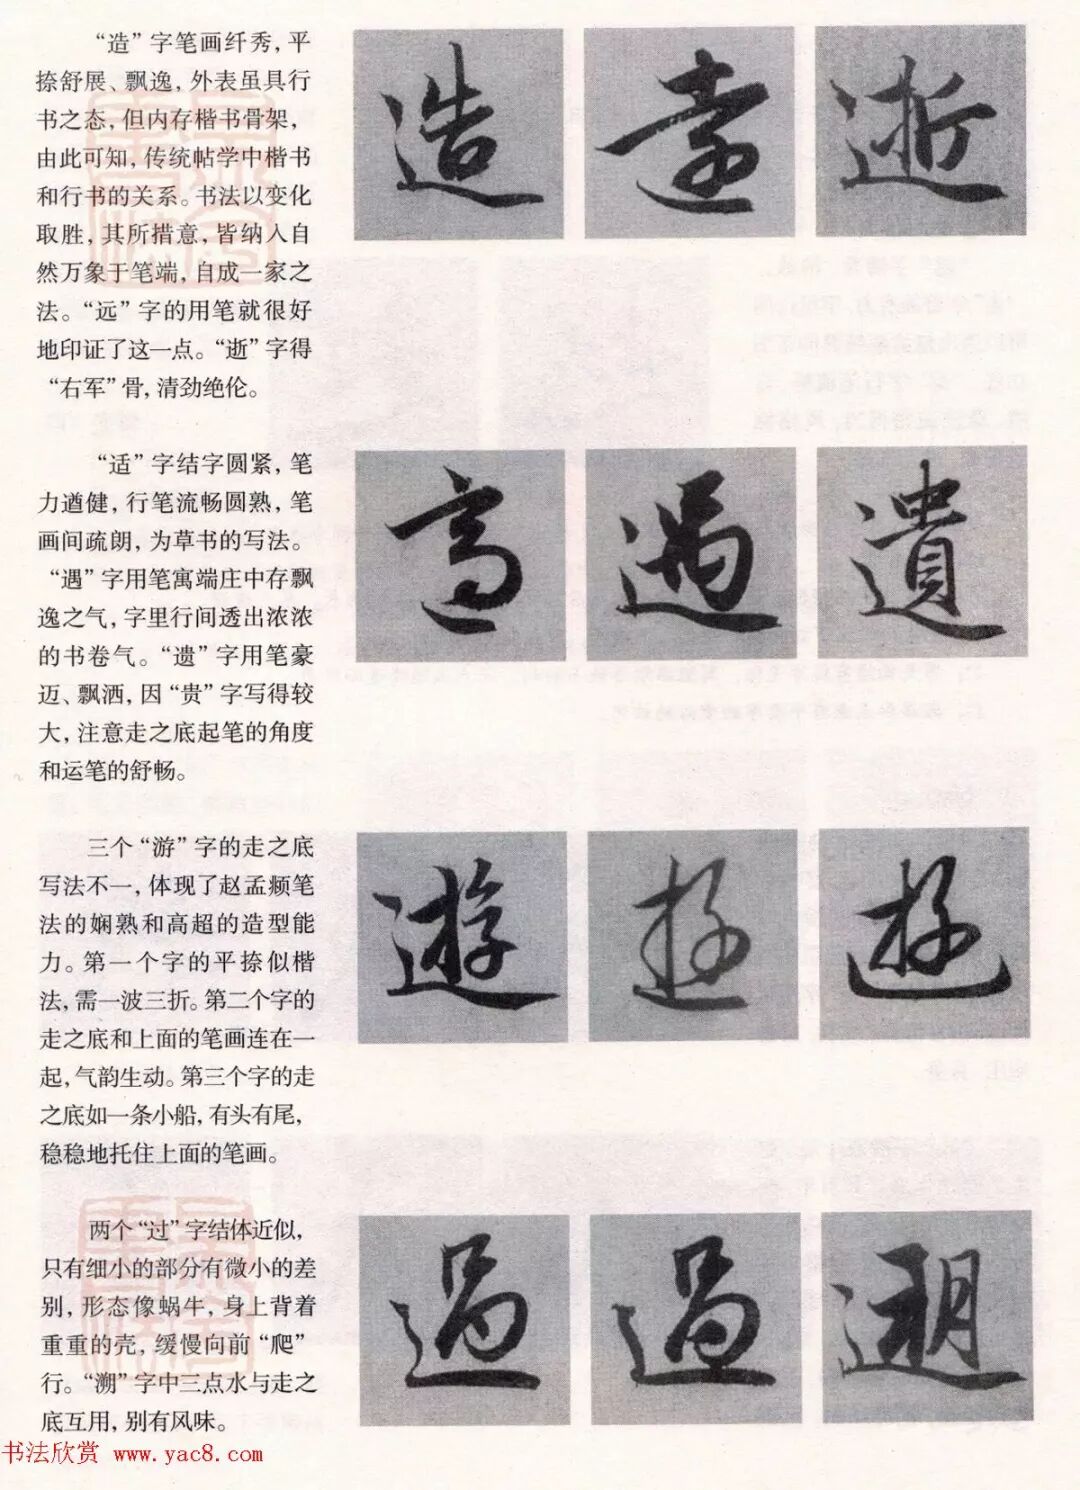 “造”字笔画纤秀，平
捺舒展、飘逸，外表虽具行
书之态，但内存楷书骨架，
由此可知，传统帖学中楷书
和行书的关系。书法以变化
取胜，其所措意，皆纳入自
然万象于笔端，自成一家之
法。“远”字的用笔就很好
地印证了这一点。“逝”字得
“右军”骨，清劲绝伦。
造 远 逝
“适”字结字圆紧，笔
力遒健，行笔流畅圆熟，笔
画间疏朗，为草书的写法。
“遇”字用笔寓端庄中存飘
逸之气，字里行间透出浓浓
的书卷气。“遗”字用笔豪
迈、飘洒，因“贵”字写得较
大，注意走之底起笔的角度
和运笔的舒畅。
適 遇 遺
三个“游”字的走之底
写法不一，体现了赵孟頫笔
法的娴熟和高超的造型能
力。第一个字的平捺似楷
法，需一波三折。第二个字的
走之底和上面的笔画连在一
起，气韵生动。第三个字的走
之底如一条小船，有头有尾，
稳稳地托住上面的笔画。
遊 遊 遊
两个“过”字结体近似，
只有细小的部分有微小的差
别，形态像蜗牛，身上背着
重重的壳，缓慢向前“爬”
行。“溯”字中三点水与走之
底互用，别有风味。
過 過 遡
书法欣赏 www.yac8.com